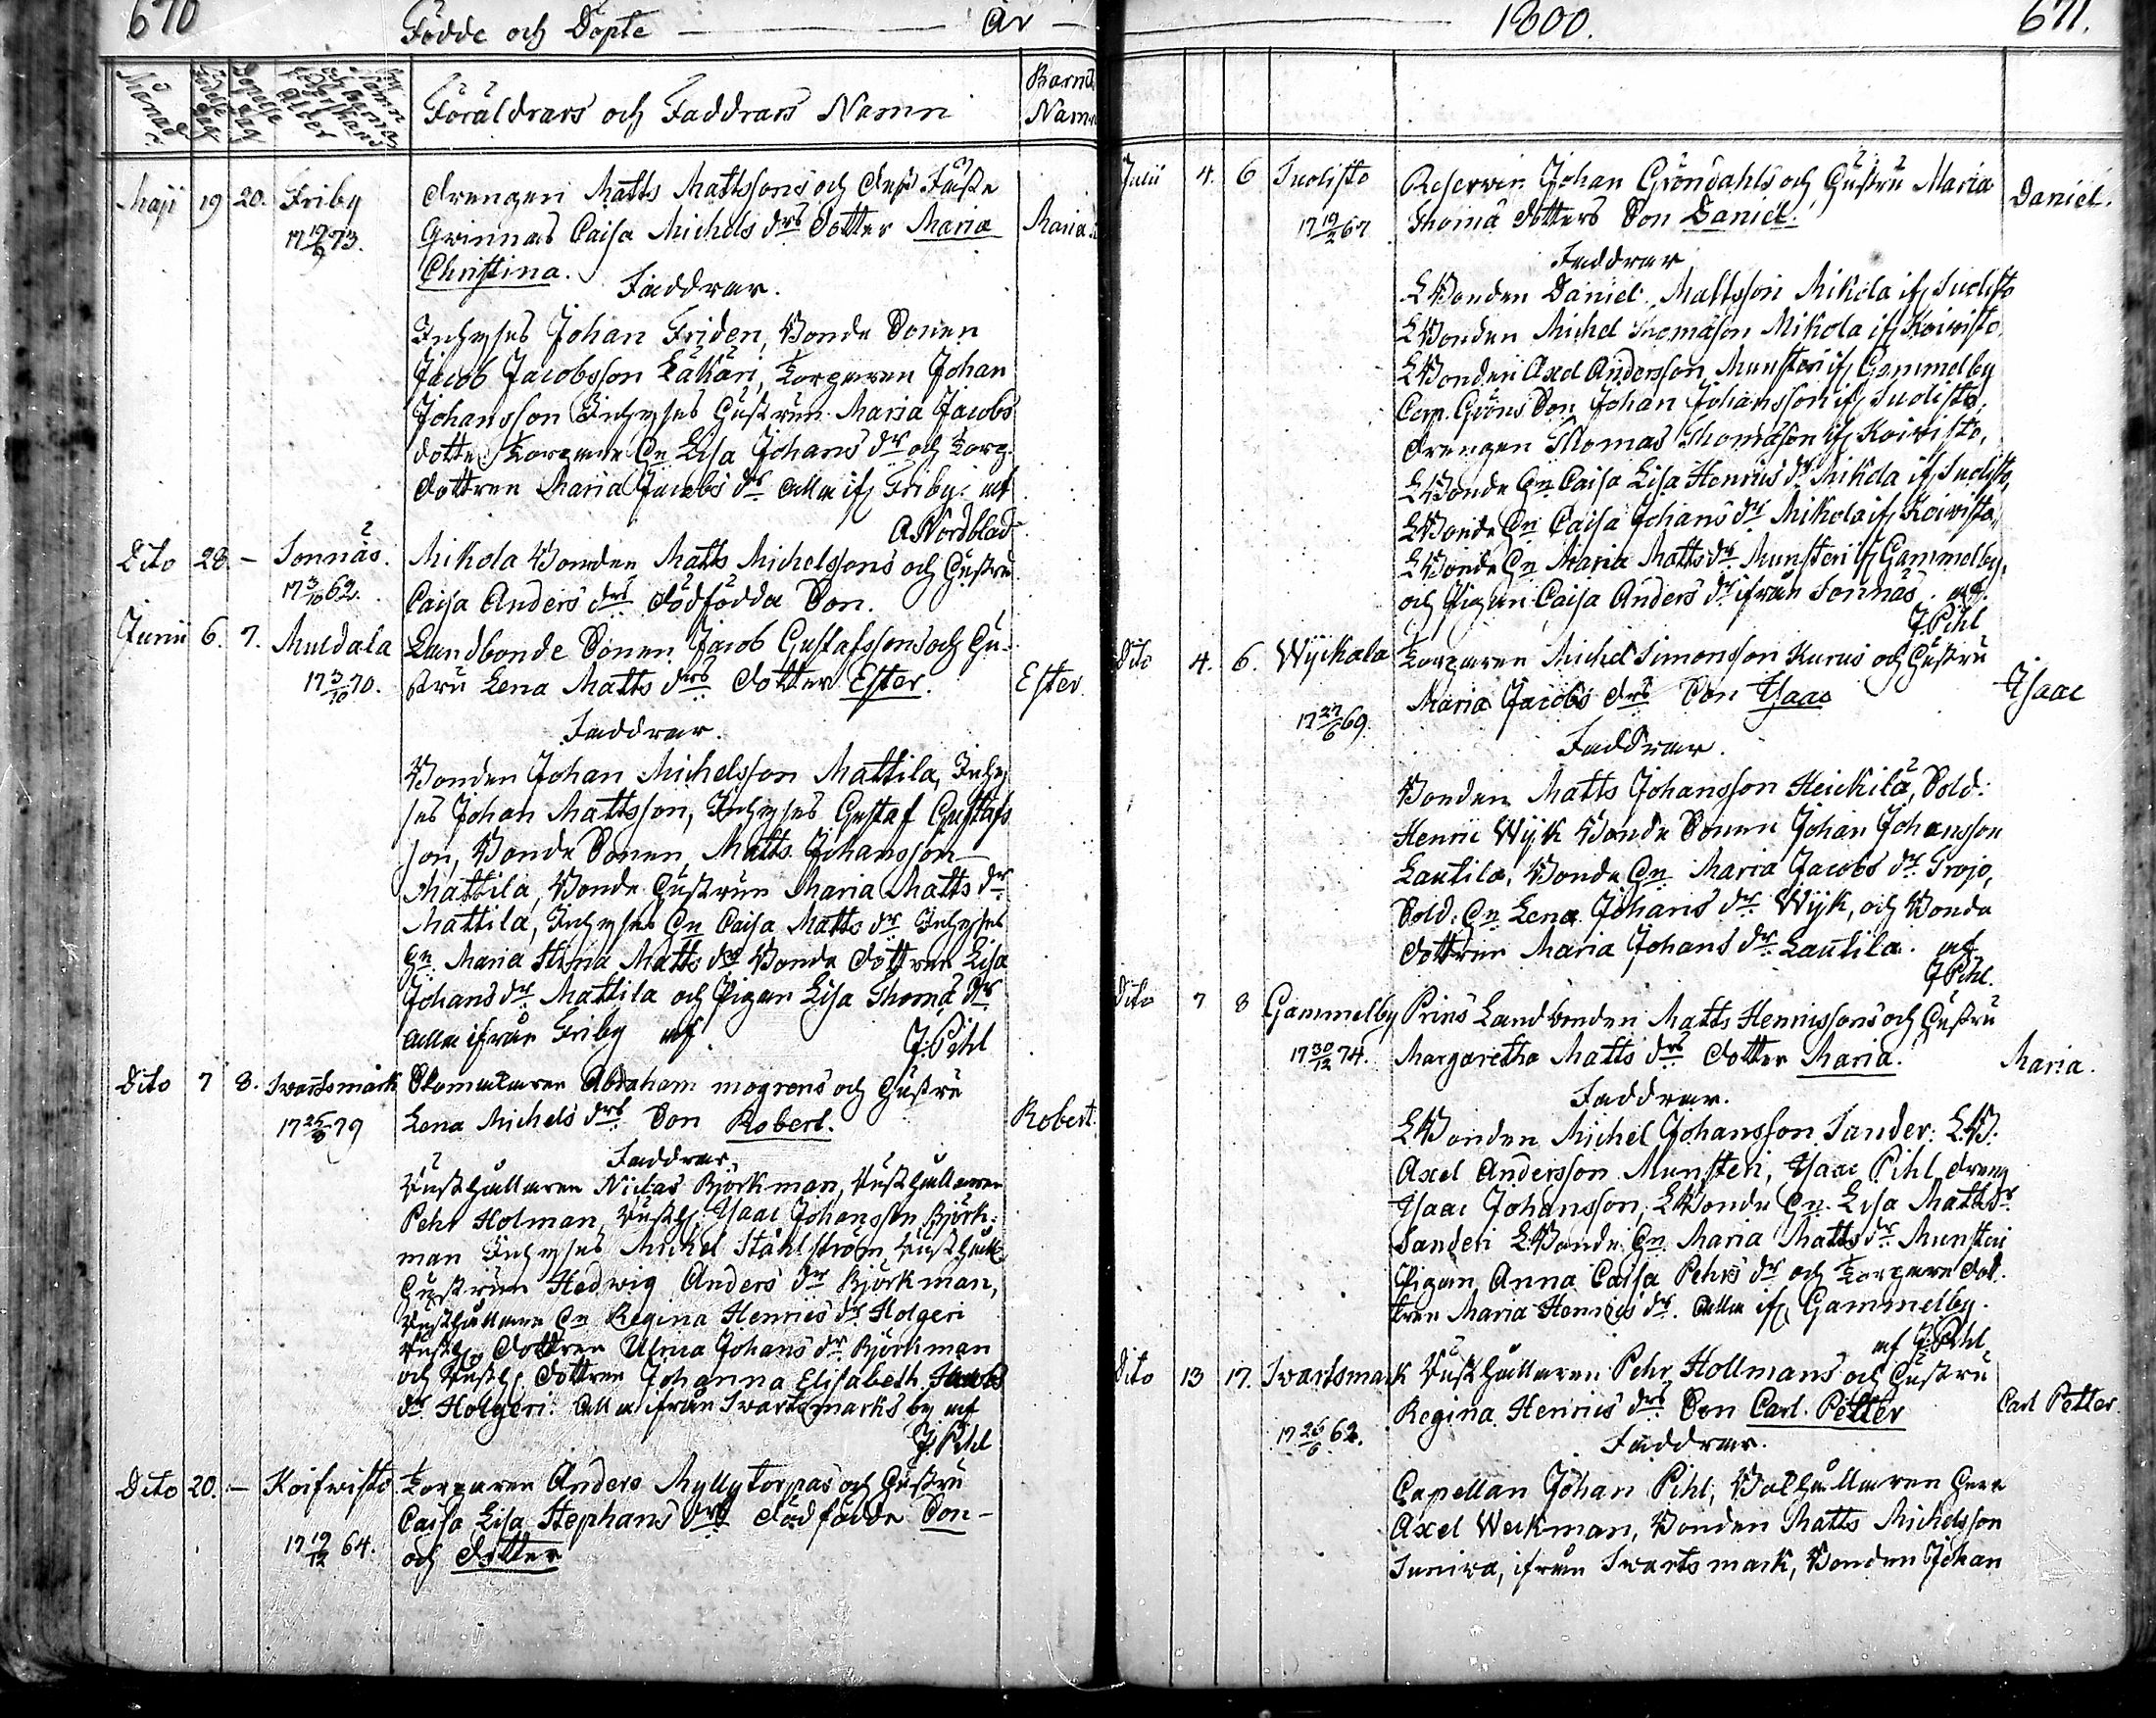 670
Födde och Döpte — År —
Månad
Födelse Dag
Döpelse Dag
Byns Namn och Barna Föderskans Ålder
Föräldrars och Faddrars Namn
Barnets Namn
Maji 19 20. Friby Drengen Matts Mattssons och dess Fäste
17 19/9 73. Qvinnas Caisa Michels drs Dotter Maria Maria
Christina.
Faddrar.
Inhyses Johan Friden, Bonde Sonen
Jacob Jacobsson Läkäri, Torparen Johan
Johansson Inhyses Hustrun Maria Jacobs
dotter Torpare Hn Lisa Johans dr och Torp.
Dottren Maria Jacobs dr alla if. Friby. af
A Nordblad
Dito 28. — Sonnäs. Mikola Bonden Matts Michelssons och Hustru
17 3/10 62. Caisa Anders drs dödfödda Son.
Junii 6. 7. Muldala Landbonde Sonen Jacob Gustafssons och Hu-
17 3/10 70. stru Lena Matts drs Dotter Ester. Ester
Faddrar.
Bonden Johan Michelsson Mattila, Inhy
ses Johan Mattsson, Inhyses Gustaf Gustafs
son, Bonde Sonen, Matts Johansson
Mattila, Bonde Hustrun Maria Matts dr
Mattila, Inhyses Hn Caisa Matts dr Inhyses
Hn Maria Stina Matts dr Bonde Dottren Lisa
Johans dr Mattila och Pigan Lisa Thoma dr
alla ifrån Friby af
J. Pihl
Dito 7 8. Swartsmark Skomakaren Abraham mogrens och Hustru
17 25/8 79 Lena Michels drs Son Robert. Robert.
Faddrar.
Rusthållaren Niclas Björkman, Rusthållaren
Pehr Holman, Rusth. Isaac Johansson Björk-
man Inhyses Michel Stählström, Rusthåll.
Hustrun Hedwig Anders dr Björkman,
Rusthållare Hn Regina Henrics dr Holgeri
Rusth. Dottren Ulrica Johans dr Björkman
och Rusth. Dottren Johanna Elisabeth Jacobs
dr Holgeri. Alla ifrån Swartsmarks by af
J. Pihl
Dito 20. — Koifwisto Torparen Anders Myllytorpas och Hustru
Caisa Lisa Stephans drs dödfödde Son-
17 19/12 64. och Dotter
1800. 671.
Julii 4. 6 Suolisto Reserven Johan Gröndahls och Hustru Maria Daniel.
17 19/2 67 Thoma dotters Son Daniel.
Faddrar
LBonden Daniel Mattsson Mikola if. Suolisto
LBonden Michel Thomasson Mikola if. Koiwisto.
LBonden Axel Andersson Munsteri if. Gammelby
Corp. Gröns Son Johan Johansson if. Suolisto.
Drengen Thomas Thomasson if. Koiwisto,
LBonde Hn Caisa Lisa Henrics dr Mikola if. Suolisto,
LBonde Hn Caisa Johans dr Mikola if. Koiwisto,
LBonde Hn Maria Matts dr Munsteri if. Gammelby,
och Pigan Caisa Anders dr ifrån Sonnäs. af.
J. Pihl
Dito 4. 6. Wyikala Torparen Michel Simonsson Kurus och Hustru Isaac
17 27/6 69. Maria Jacobs drs Son Isaac
Faddrar.
Bonden Matts Johansson Heickilä, Sold:
Henric Wijk Bonde Sonen Johan Johansson
Lautila, Bonde Hn Maria Jacobs dr Trojo,
Sold. Hn Lena Johans dr Wijk, och Bonde
dottren Maria Johans dr Lautila. af
J Pihl.
Dito 7 8 Gammelby Prins Landbonden Matts Henrissons och Hustru
17 30/12 74. Margaretha Matts drs Dotter Maria. Maria.
Faddrar.
LBonden Michel Johansson Sander: L.B:
Axel Andersson Munsteri, Isaac Pihl, dreng
Isaac Johansson, LBonde Hn. Lisa Matts dr
Sanderi L.Bonde Hn Maria Matts dr Munsteri
Pigan Anna Caisa Pehrs dr och Torpare Dot-
tren Maria Henrics dr. alla if. Gammelby.
af J. Pihl.
Dito 13 17. Swartsmark Rusthållaren Pehr Hollmans och Hustru
17 26/6 62. Regina Henrics drs Son Carl Petter Carl Petter.
Faddrar.
Capellan Johan Pihl, Bolhållaren Herr
Axel Weckman, Bonden Matts Michelsson
Suniwa, ifrån Swartsmark, Bonden Johan